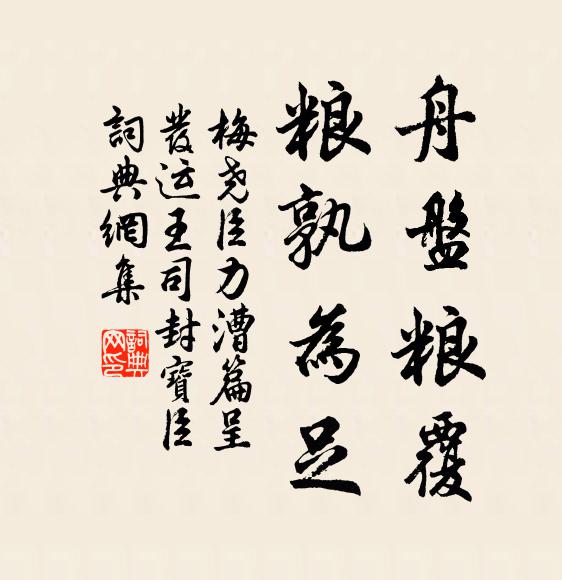 舟盤粮覆
粮孰為足
梅尧臣力漕篇呈
發运王司封寶臣
詞典網集
詞典网印